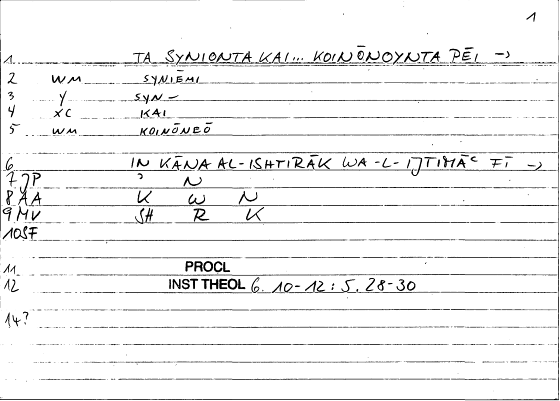 1
1 TA SYNIONTA KAI... KOINŌNOYNTA PĒI →
2 WM SYNIEMI
3 Y SYN-
4 XC KAI
5 WM KOINŌNEŌ
6 IN KĀNA AL-ISHTIRĀK WA-L-IJTIMĀᶜ FĪ →
7 JP ʾ N
8 AA K W N
9 MV SH R K
10 SF
11 PROCL
12 INST THEOL 6. 10-12 : 5. 28-30
14?